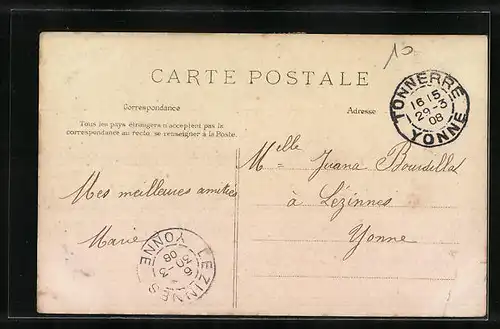 10
CARTE POSTALE
Correspondance
Adresse
Tous les pays étrangers n'acceptent pas la
correspondance au recto, se renseigner à la Poste.
TONNERRE
16 15
29-3
08
YONNE
Melle Juana Bourdillat
à Lézinnes
Yonne
Mes meilleures amitiés
Marie
LEZINNES
6
30-3
08
YONNE